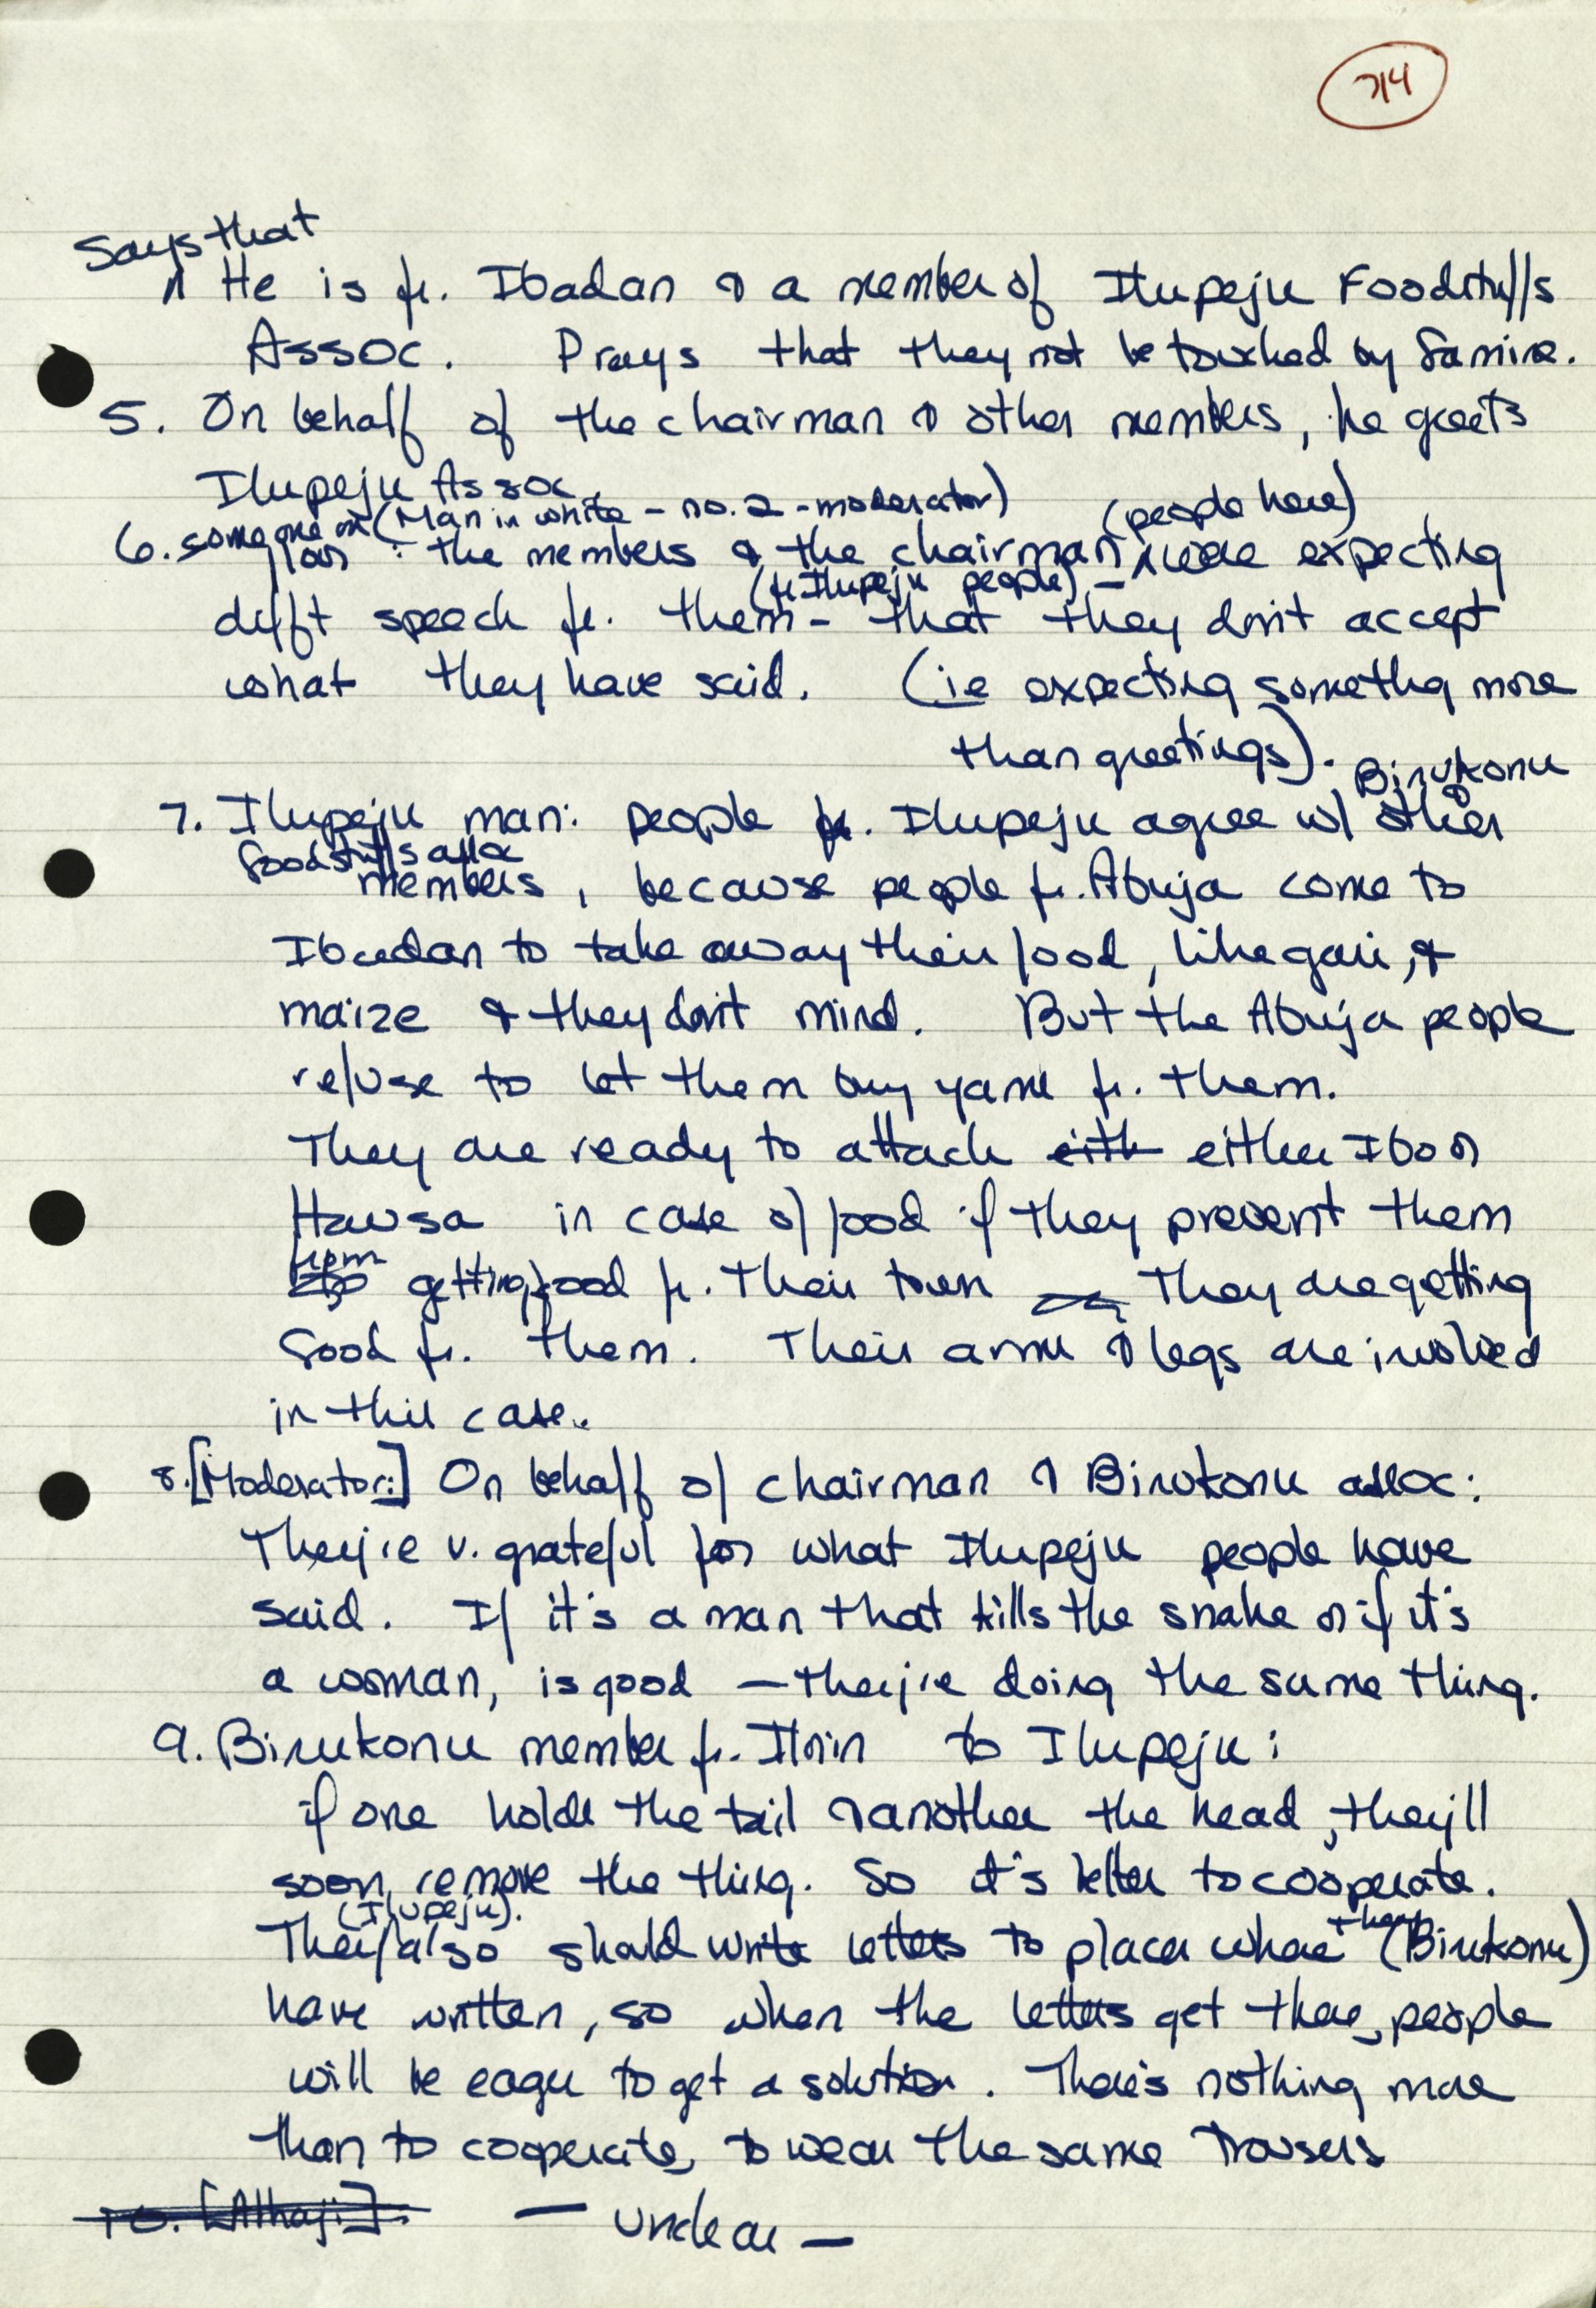 714
Says that
He is fr. Ibadan & a member of Ilupeju Foodstuffs
Assoc. Prays that they not be touched by famine.
5. On behalf of the chairman & other members, he greets
Ilupeju Assoc.
6. someone (Man in white – no. 2 - moderator) (people here)
: the members & the chairman were expecting
(fr Ilupeju people) –
difft speech fr. them – that they don't accept
what they have said. (ie expecting somethg more
than greetings).
Birukonu
7. Ilupeju man: people fr. Ilupeju agree w/ other
foodstuffs assoc
members, because people fr. Abuja come to
Ibadan to take away their food, like gari, &
maize & they don't mind. But the Abuja people
refuse to let them buy yams fr. them.
They are ready to attack eith either Ibo or
Hausa in case of food if they prevent them
from
getting food fr. their town They are getting
food fr. them. Their arms & legs are involved
in this case.
8. [Moderator:] On behalf of chairman & Birukonu assoc:
They're v. grateful for what Ilupeju people have
said. If it's a man that kills the snake or if it's
a woman, is good – they're doing the same thing.
9. Birukonu member fr. Ilorin to Ilupeju:
if one holds the tail & another the head, they'll
soon remove the thing. So it's better to cooperate.
(Ilupeju). they
They also should write letters to places where (Birukonu)
have written, so when the letters get there, people
will be eager to get a solution. There's nothing more
than to cooperate, to wear the same trousers
10. [Alhaji]: — unclear —